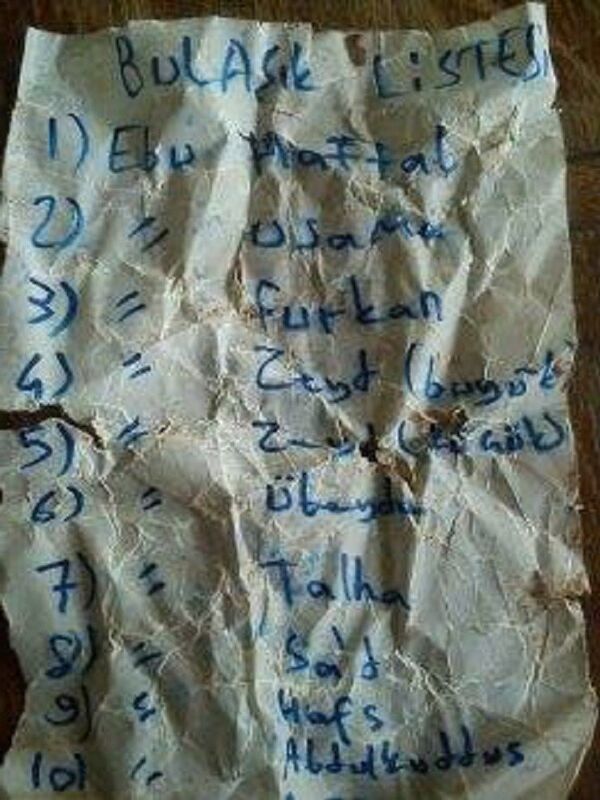 BULAŞIK LİSTESİ
1) Ebu Hattab
2) " Usame
3) " furkan
4) " Zeyd (büyük)
5) " Zeyd (küçük)
6) " Übeyde
7) " Talha
8) " Sa'd
9) " Hafs
10) " Abdulkuddus